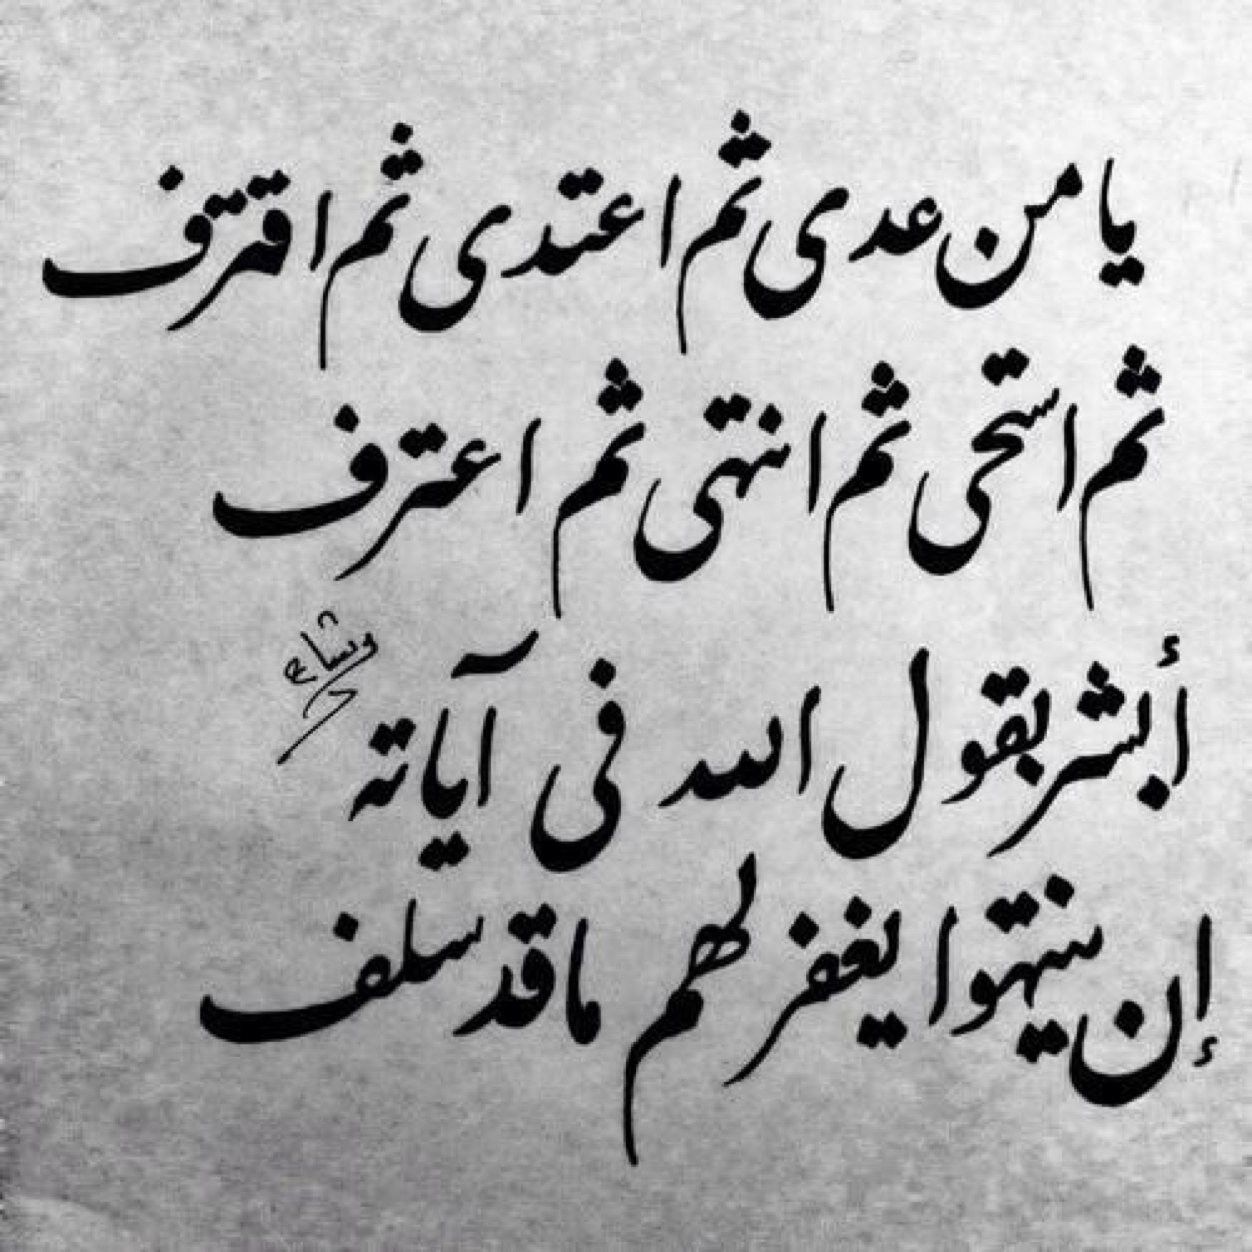 يا من عدى ثم اعتدى ثم اقترف
ثم استحى ثم انتهى ثم اعترف
أبشر بقول الله في آياته
وسام
إن ينتهوا يغفر لهم ما قد سلف